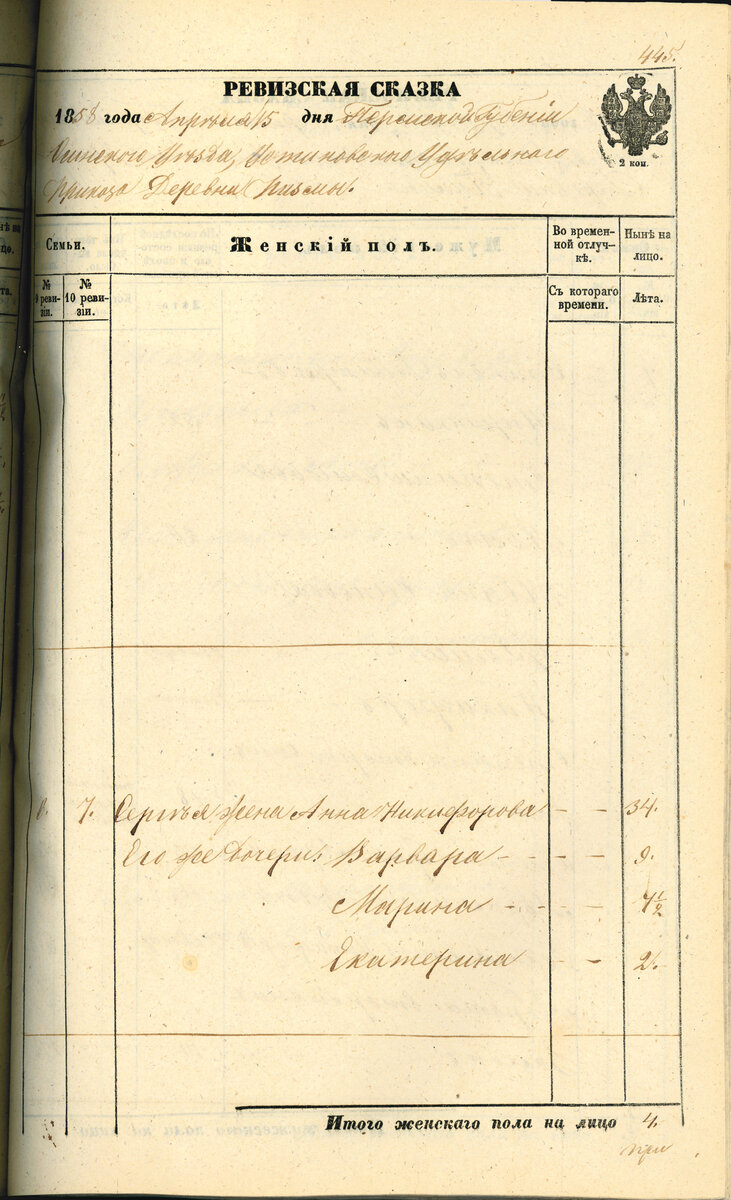 445.
РЕВИЗСКАЯ СКАЗКА
1858 года Апреля 15 дня Пермской Губернiи
Осинского Уезда, Устиновского Удельнаго
Приказа Деревни Пизмы.
2 коп.
Семьи.
Женскiй полъ.
Во временной отлучкѣ.
Нынѣ на лицо.
№ 9 ревизiи.
№ 10 ревизiи.
Съ котораго времени.
Лѣта.
6. 7. Сергѣя жена Анна Никифорова - - 34.
Его же дочери: Варвара - - - - 9.
Марина - - - - 7½
Екатерина - - 2.
Итого женскаго пола на лицо 4.